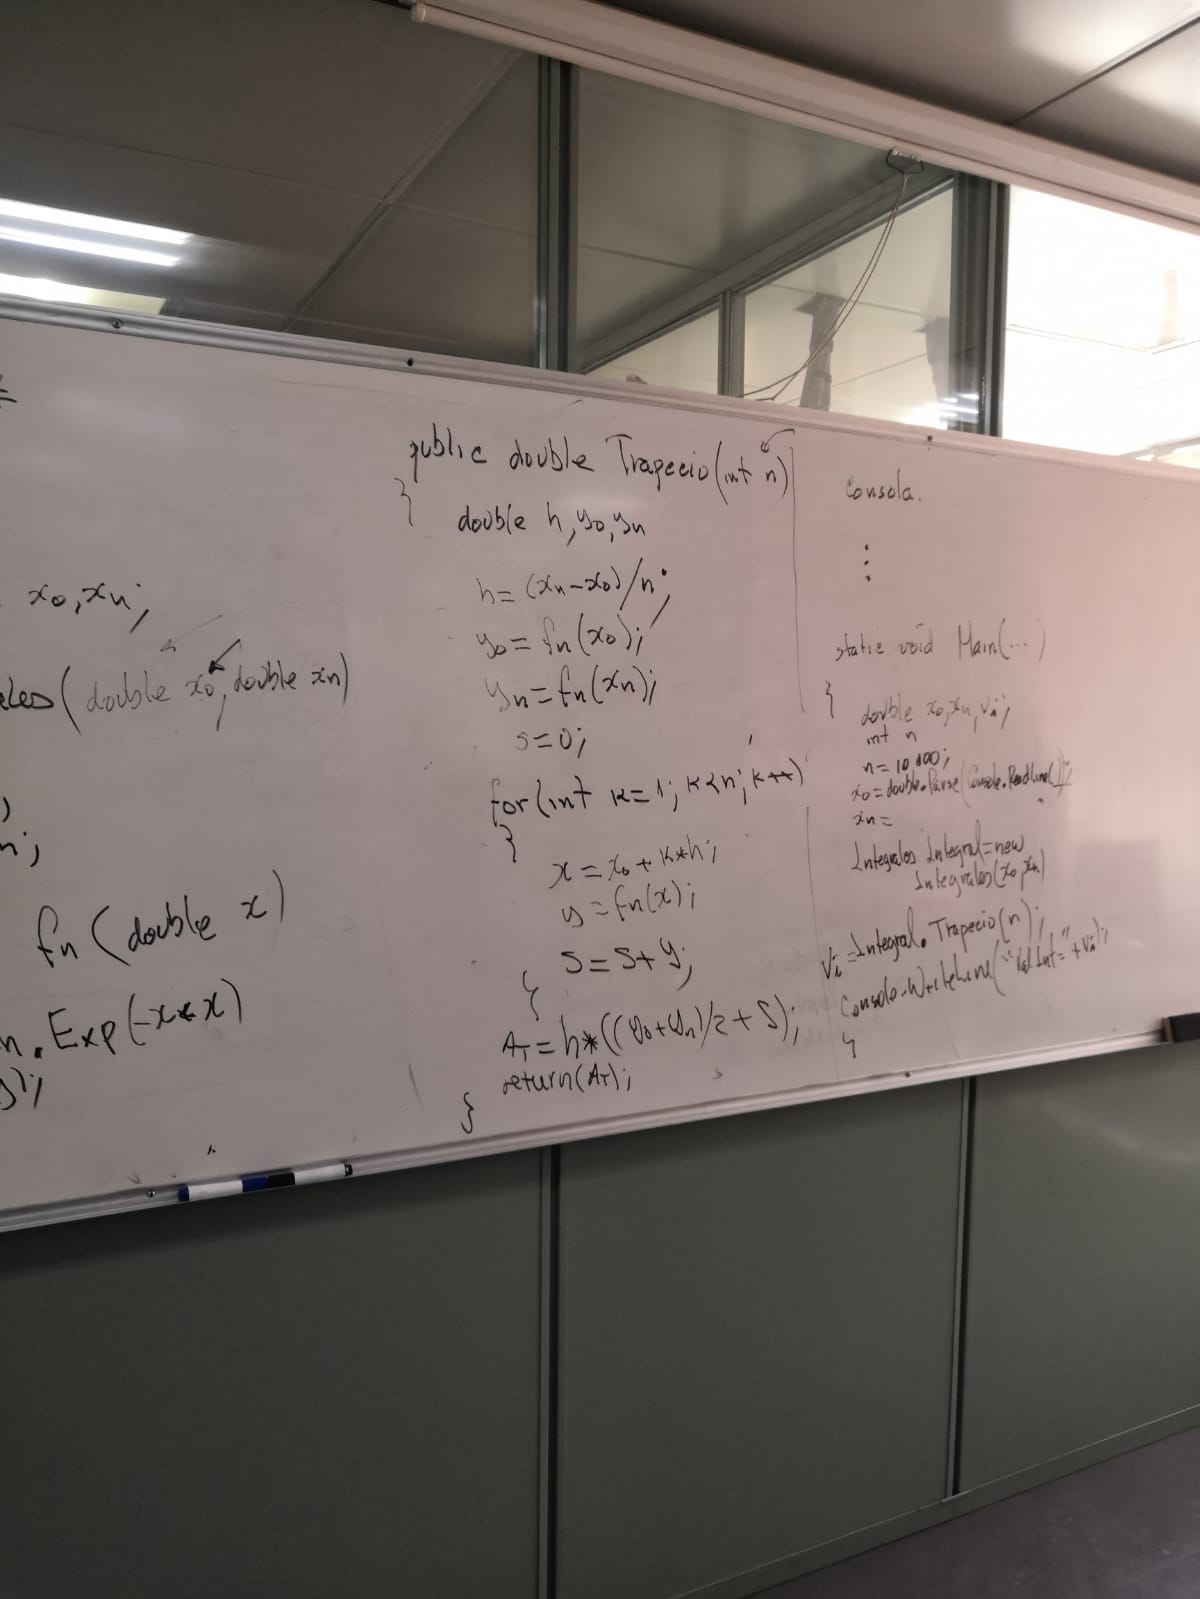 x0, xn;
(double x0, double xn)
fn (double x)
n. Exp(-x*x)
public double Trapecio(int n)
{
double h, y0, yn
h = (xn-x0)/n;
y0 = fn(x0);
yn = fn(xn);
s=0;
for(int k=1; k<n; k++)
{
x = x0 + k*h;
y = fn(x);
S = S+y;
}
AT = h*((y0+yn)/2 + S);
return(AT);
}
Consola.
⋮
static void Main(...)
{
double x0, xn, vi;
int n
x0 = double.Parse(Console.ReadLine());
xn =
Integrales Integral = new
Integrales(x0, xn)
Vi = Integral.Trapecio(n);
Console.WriteLine("Val Int=" + Vi);
}